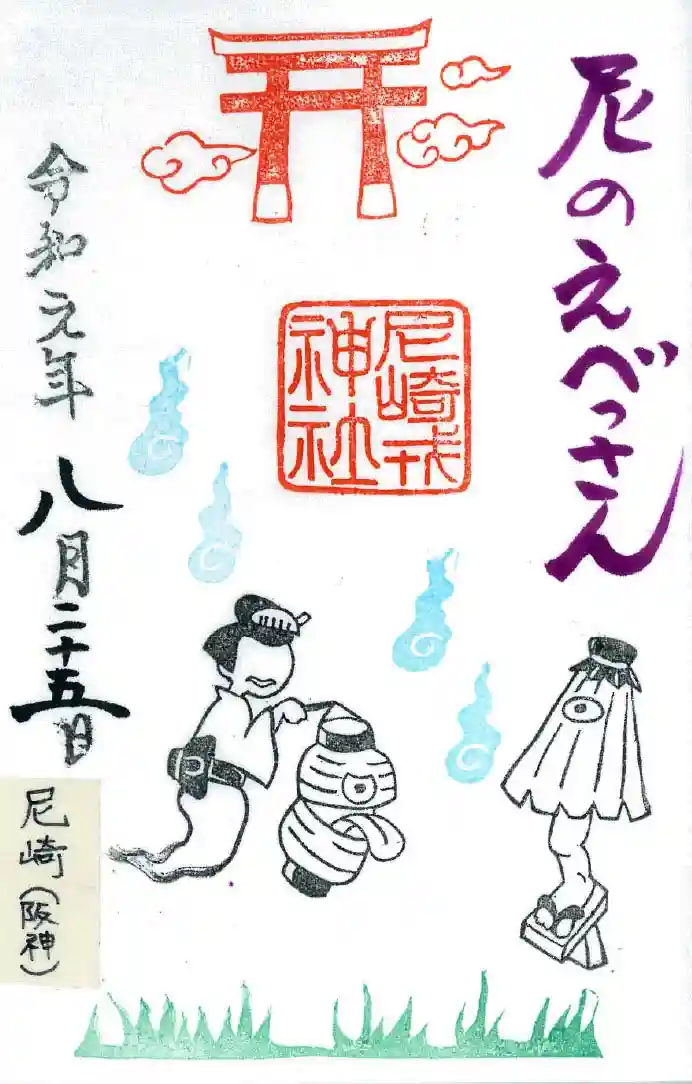 尼のえべっさん
尼崎戎
神社
令和元年八月二十五日
尼崎(阪神)